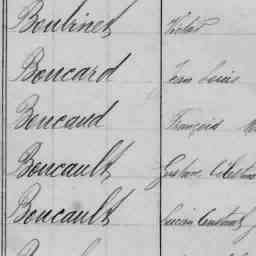 Boulinet Victor
Boucard Jean Louis
Boucaud François
Boucault Gustave Célestin
Boucault Lucien Constant